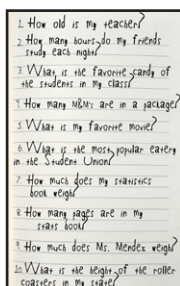 1. How old is my teacher?
2. How many hours do my friends
study each night?
3. What is the favorite candy of
the students in my class?
4. How many M&M's are in a package?
5. What is my favorite movie?
6. What is the most popular eatery
in the Student Union?
7. How much does my statistics
book weigh?
8. How many pages are in my
stats book?
9. How much does Ms. Mendez weigh?
10. What is the height of the roller
coasters in my state?